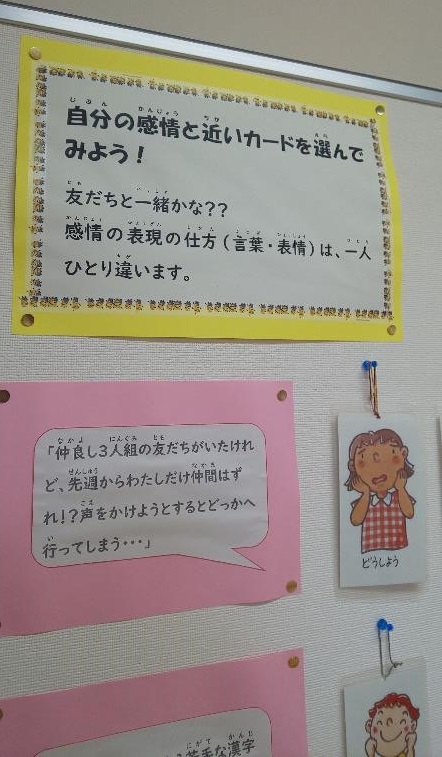 自分の感情と近いカードを選んで
みよう!
友だちと一緒かな??
感情の表現の仕方(言葉・表情)は、一人
ひとり違います。
「仲良し3人組の友だちがいたけれ
ど、先週からわたしだけ仲間はず
れ!?声をかけようとするとどっかへ
行ってしまう・・・」
どうしよう
苦手な漢字